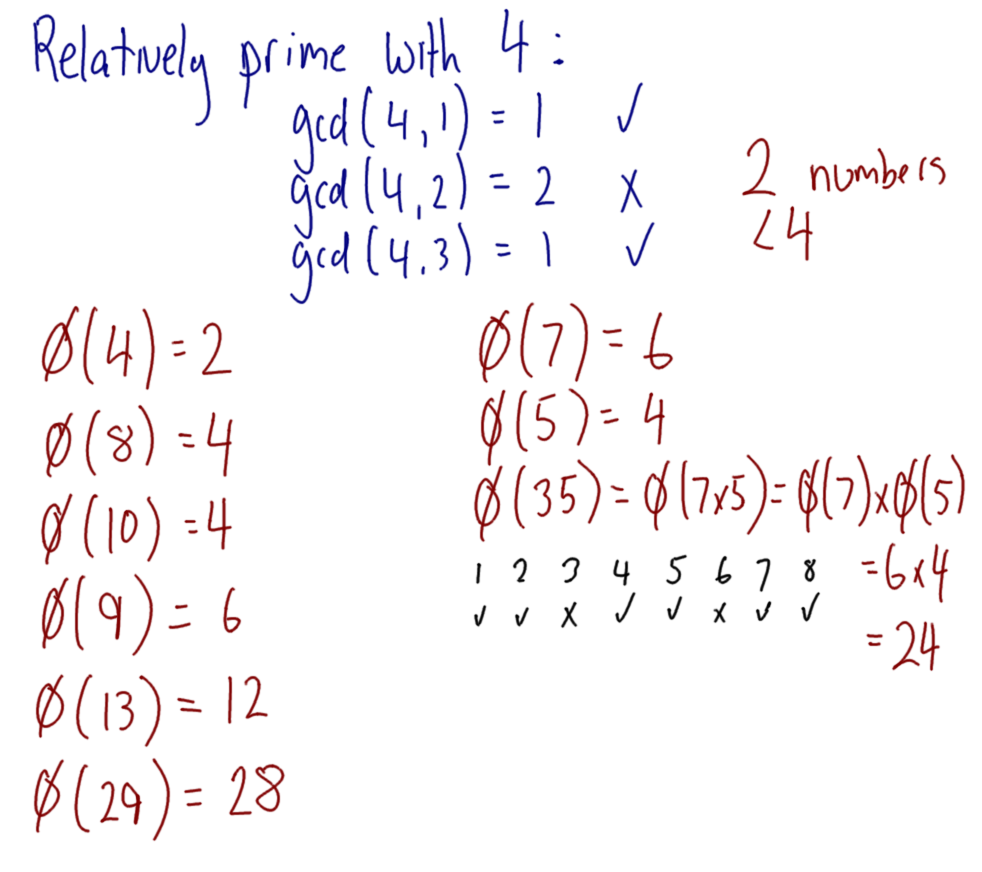 Relatively prime with 4:
gcd(4,1) = 1 ✓
gcd(4,2) = 2 x
gcd(4,3) = 1 ✓
2 numbers
<4
ø(4) = 2
ø(8) = 4
ø(10) = 4
ø(9) = 6
ø(13) = 12
ø(29) = 28
ø(7) = 6
ø(5) = 4
ø(35) = ø(7x5) = ø(7)xø(5)
= 6x4
= 24
1 2 3 4 5 6 7 8
✓ ✓ x ✓ ✓ x ✓ ✓